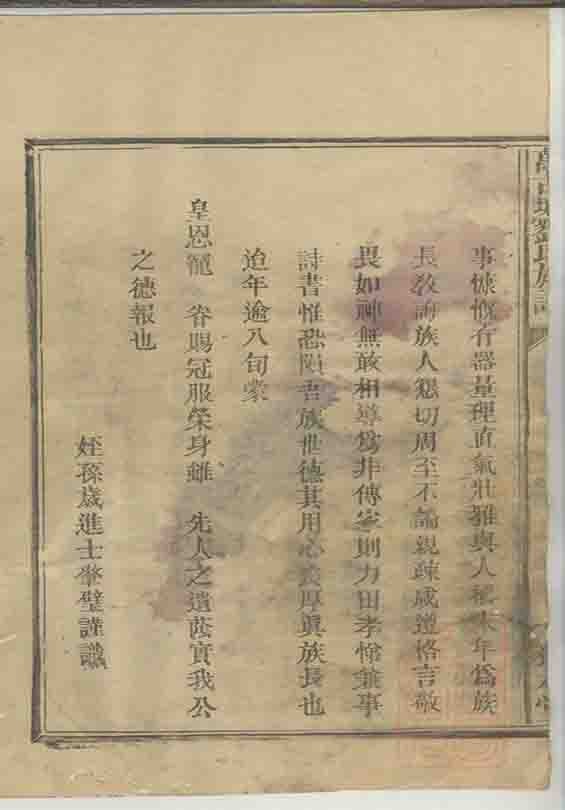 劉氏族譜
事慷慨有器量理直氣壯雅與人 末年爲族
長教誨族人懇切周至不論親疎咸遵恪言敬
畏如神無敢相導爲非傳家則力田孝悌兼事
詩書惟恐隕吾族世德其用心 厚眞族長也
迨年逾八旬蒙
皇恩寵 眷賜冠服榮身雖 先人之遺蔭實我公
之德報也
姪孫歲進士 璧謹識